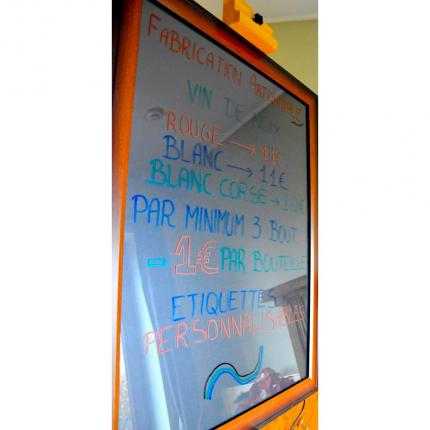 FABRICATION ARTISANALE
VIN DE NOIX
ROUGE → 11€
BLANC → 11€
BLANC CORSÉ →
PAR MINIMUM 3 BOUT
- 1€ PAR BOUTEILLE
ETIQUETTES
PERSONNALISABLES